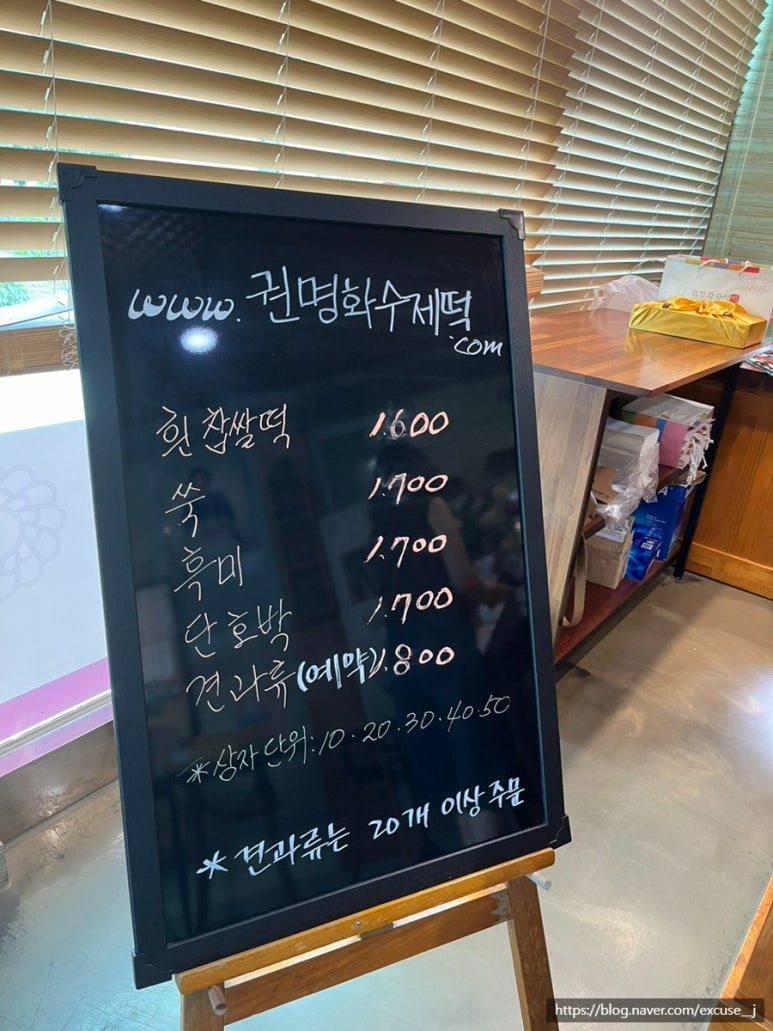 www.권명화수제떡
.com
흰찹쌀떡 1.600
쑥 1.700
흑미 1.700
단호박 1.700
견과류(예약) 1.800
*상자단위:10·20·30·40·50
*견과류는 20개 이상 주문
권명화수제떡
https://blog.naver.com/excuse__j